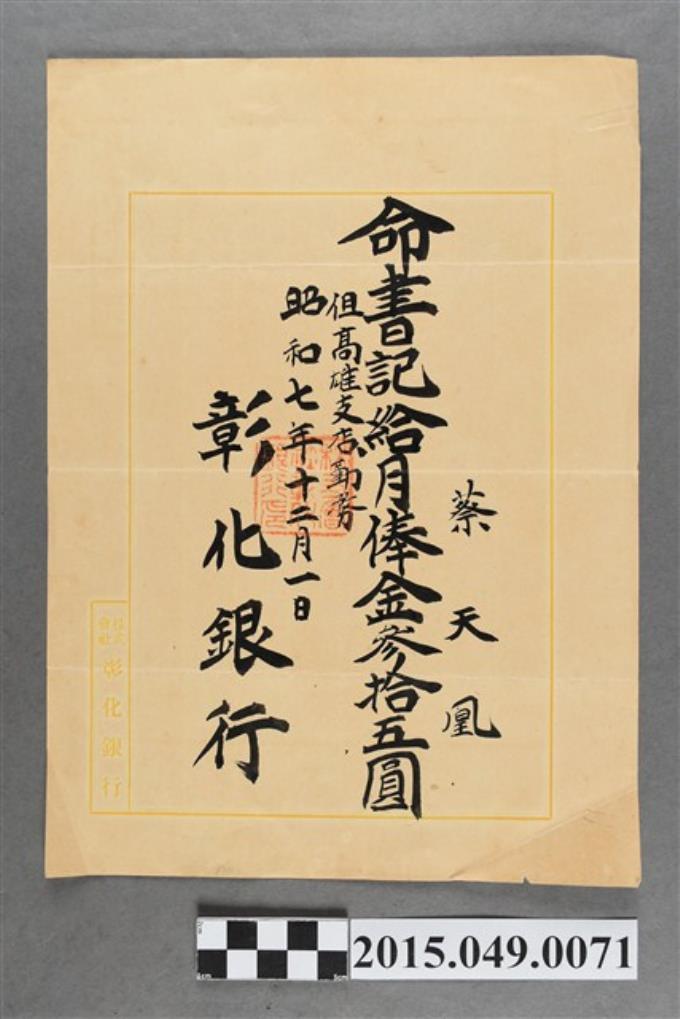 蔡天凰
命書記給月俸金參拾五圓
但高雄支店勤務
昭和七年十二月一日
彰化銀行
株式會社彰化銀行
2015.049.0071